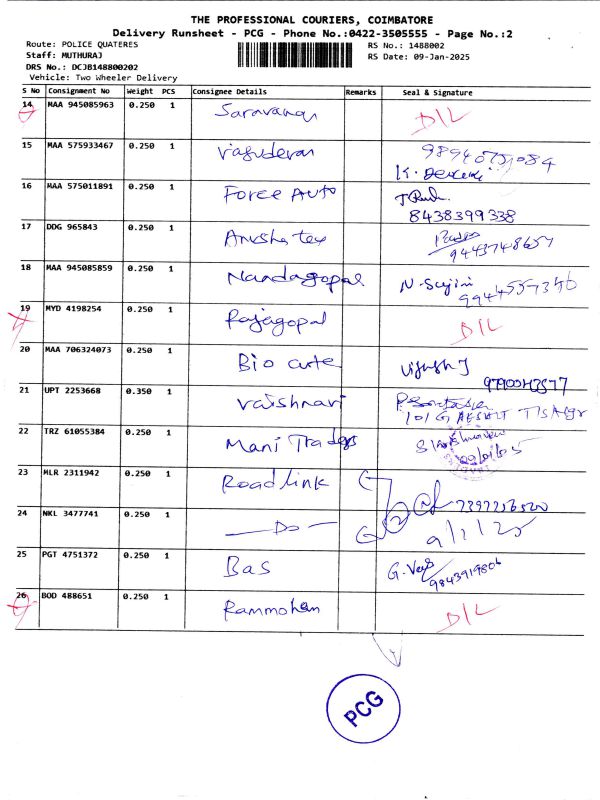 THE PROFESSIONAL COURIERS, COIMBATORE
Delivery Runsheet - PCG - Phone No.:0422-3505555 - Page No.:2
Route: POLICE QUATERES RS No.: 1488002
Staff: MUTHURAJ RS Date: 09-Jan-2025
DRS No.: DCJB148800202
Vehicle: Two Wheeler Delivery
S No Consignment No Weight PCS Consignee Details Remarks Seal & Signature
14 MAA 945085963 0.250 1 Saravanan D/L
15 MAA 575933467 0.250 1 Vasudevan
16 MAA 575011891 0.250 1 Force Auto 8438399338
17 DDG 965843 0.250 1 Anusha tex 9443748657
18 MAA 945085859 0.250 1 Nandagopal N. Sujini
19 MYD 4198254 0.250 1 Rajagopal D/L
20 MAA 706324073 0.250 1 Bio cute
21 UPT 2253668 0.350 1 Vaishnavi
22 TRZ 61055384 0.250 1 Mani Traders
23 MLR 2311942 0.250 1 Roadlink
24 NKL 3477741 0.250 1 — Do — 9/1/25
25 PGT 4751372 0.250 1 Bas 9843919806
26 BOD 488651 0.250 1 Rammohan D/L
PCG